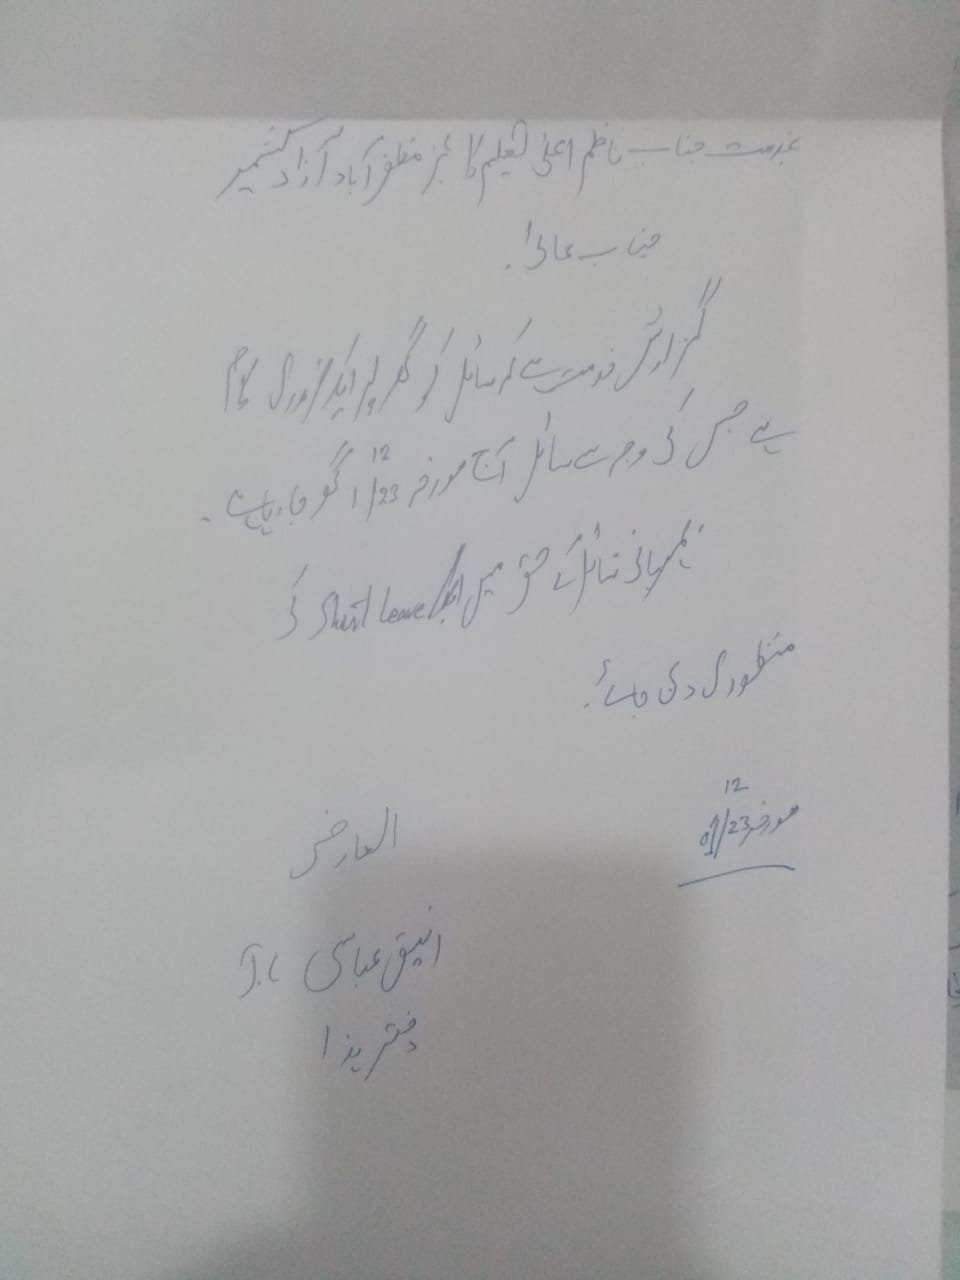 بخدمت جناب ناظم اعلیٰ تعلیم کالجز مظفرآباد آزاد کشمیر
جناب عالی!
گزارش خدمت ہے کہ سائل کو گھر پر ایک ضروری کام
ہے جس کی وجہ سے سائل آج مورخہ 23/12 گھر جا رہا ہے۔
بمہربانی سائل کے حق میں Short leave کی
منظوری دی جائے۔
مورخہ 23/12
العارض
انیق عباسی J.C
دفتر ہذا